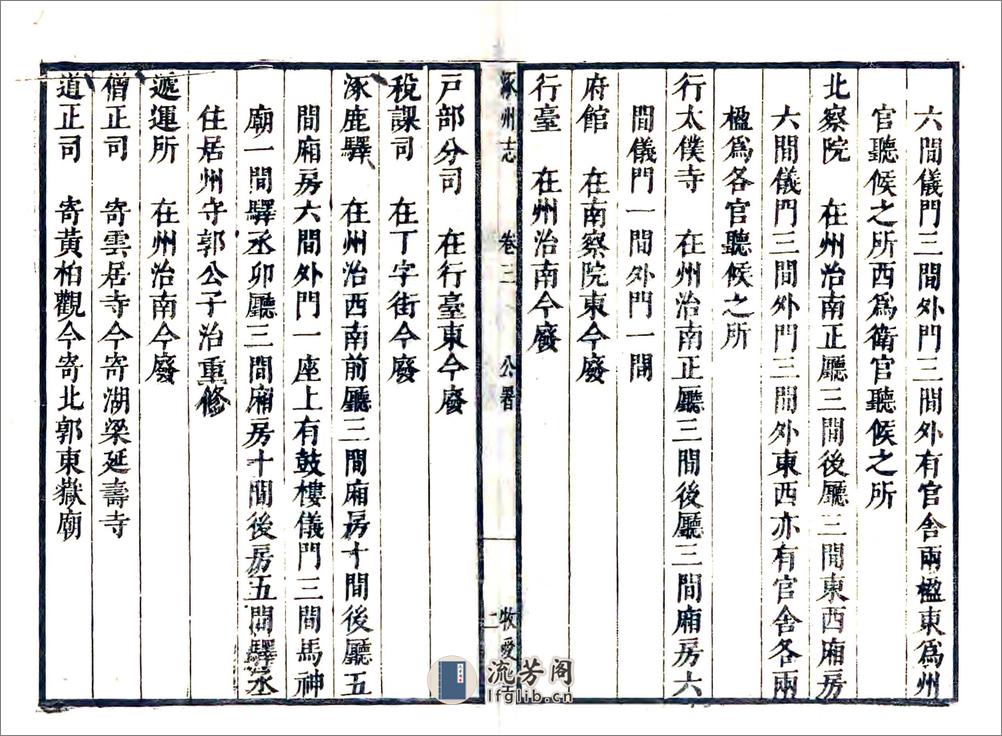 六間儀門三間外門三間外有官舎兩楹東爲州
官聽候之所西爲衛官聽候之所
北察院　在州治南正廳三間後廳三間東西廂房
六間儀門三間外門三間外東西亦有官舎各兩
楹爲各官聽候之所
行太僕寺　在州治南正廳三間後廳三間廂房六
間儀門一間外門一間
府館　在南察院東今廢
行臺　在州治南今廢
涿州志　卷三　公署　二　牧愛
戸部分司　在行臺東今廢
稅課司　在丁字街今廢
涿鹿驛　在州治西南前廳三間廂房十間後廳五
間廂房六間外門一座上有鼓樓儀門三間馬神
廟一間驛丞卯廳三間廂房十間後房五間驛丞
住居州守郭公子治重修
遞運所　在州治南今廢
僧正司　寄雲居寺今寄湖梁延壽寺
道正司　寄黃柏觀今寄北郭東嶽廟
流芳阁
lfglib.cn